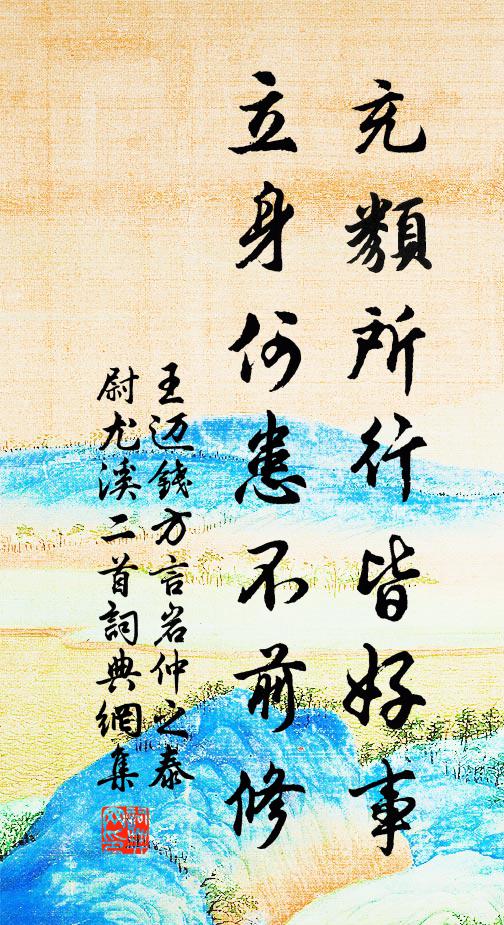 充類所行皆好事
立身何患不前修
王迈錢方言岩仲之泰
尉尤溪二首詞典網集